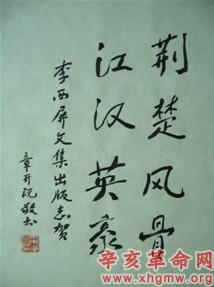 荆楚风骨
江汉英豪
李西屏文集出版志贺
章开沅敬书
辛亥革命网
www.xhgmw.org